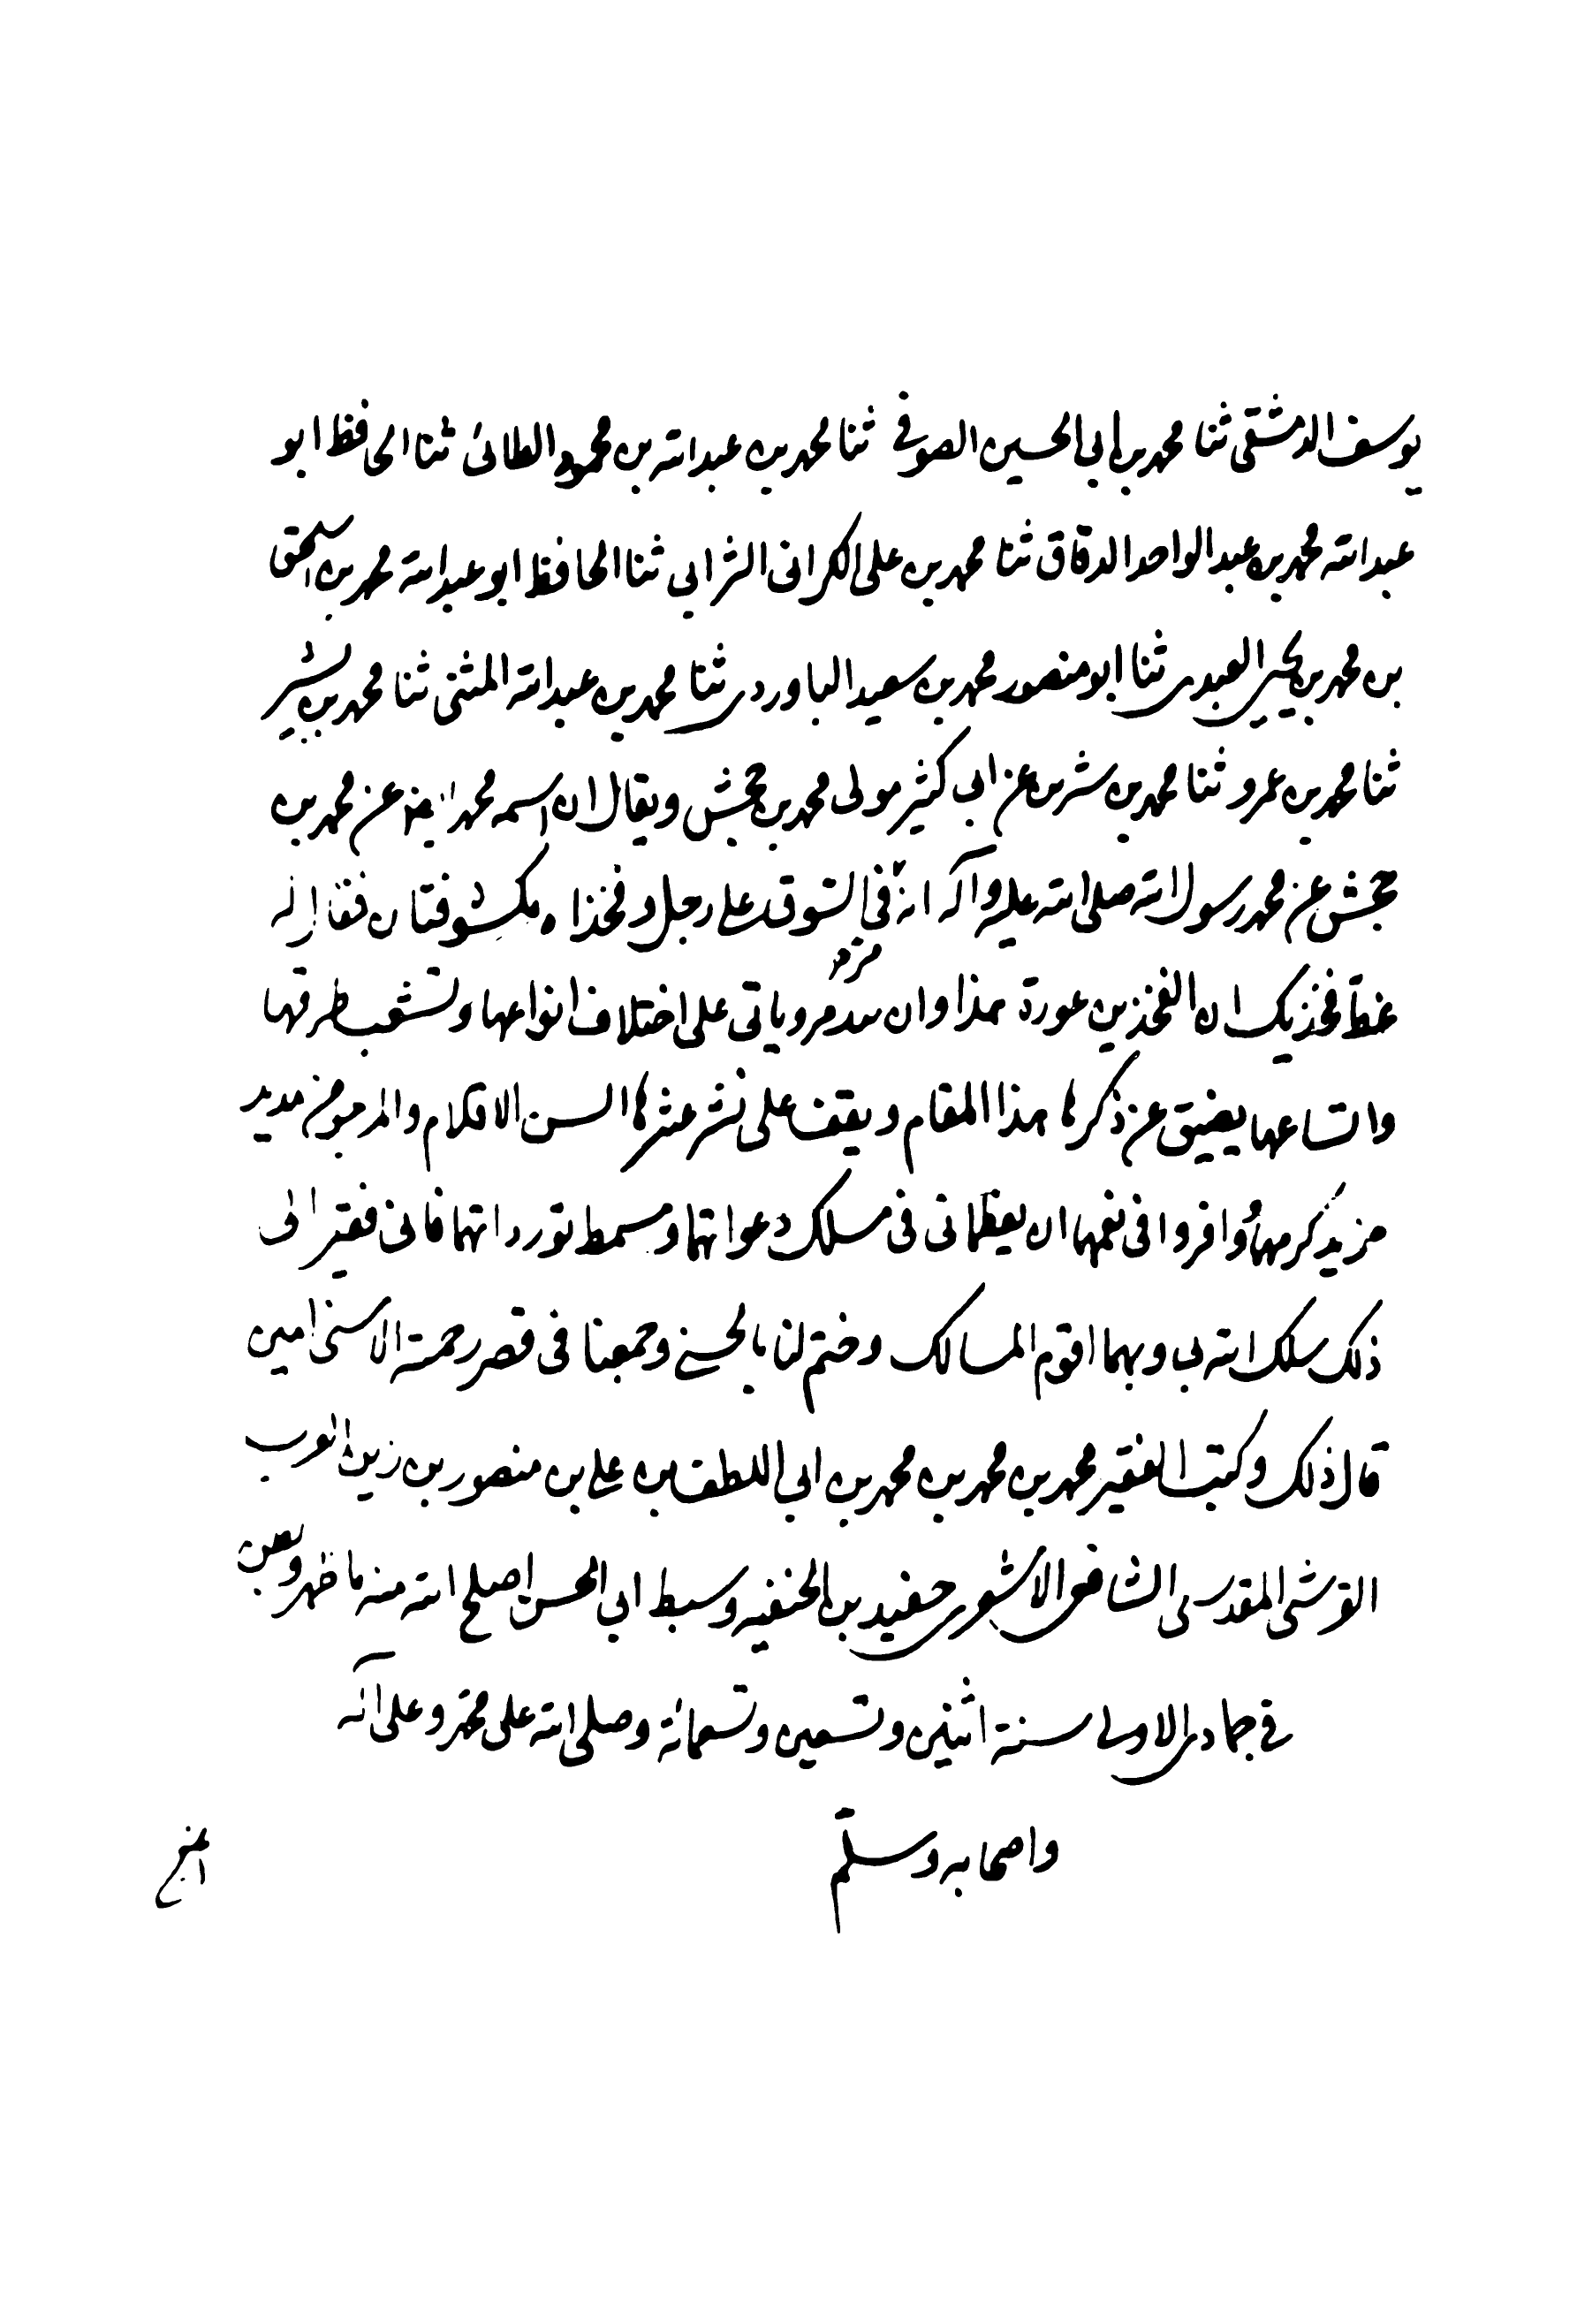 يوسف الدمشقى ثنا محمد بن ابي الحسين الصوفي ثنا محمد بن عبد الله بن محمود الطائى ثنا الحافظ ابو
عبد الله محمد بن عبد الواحد الدقاق ثنا محمد بن على الكرانى الشرابي ثنا الحافظ ابو عبد الله محمد بن اسحق
بن محمد بن يحيى العبدى ثنا ابو منصور محمد بن سعيد الباوردى ثنا محمد بن عبد الله المثنى ثنا محمد بن بشير
ثنا محمد بن عمرو ثنا محمد بن سيرين عن ابى كثير مولى محمد بن جحش ويقال ان اسمه محمد ايضا عن محمد بن
جحش عن محمد رسول الله صلى الله عليه وآله انه في السوق على رجل وفخذاه مكشوفتان فقال له
غط فخذيك ان الفخذين عورة هذا وان مروياتى على اختلاف انواعها وتشعب طرقها
واتساعها يضيق عن ذكرها هذا المقام ويقف على نشر عشرها السن الاقلام والمرجو من مديد
مزيد كرمها وافر وافى نعمها ان يعظمانى فى مسلك دعواتهما ومسمط توردداتهما فانى فقير الى
ذلك سلك الله بي وبهما اقوم المسالك وختم لنا بالحسنى وجمعنا فى قصر رحمته الاسنى امين
قال ذلك وكتب الفقير محمد بن محمد بن محمد بن ابي اللطف بن على بن منصور بن زين العرب
القرشى المقدسى الشافعى الاشعرى حفيد بن الحنفيه وسبط ابي الحسن اصلح الله منه ما ظهر وبطن
في جمادى الاولى سنة اثنين وتسعين وتسعمائة وصلى الله على محمد وعلى آله
واصحابه وسلم